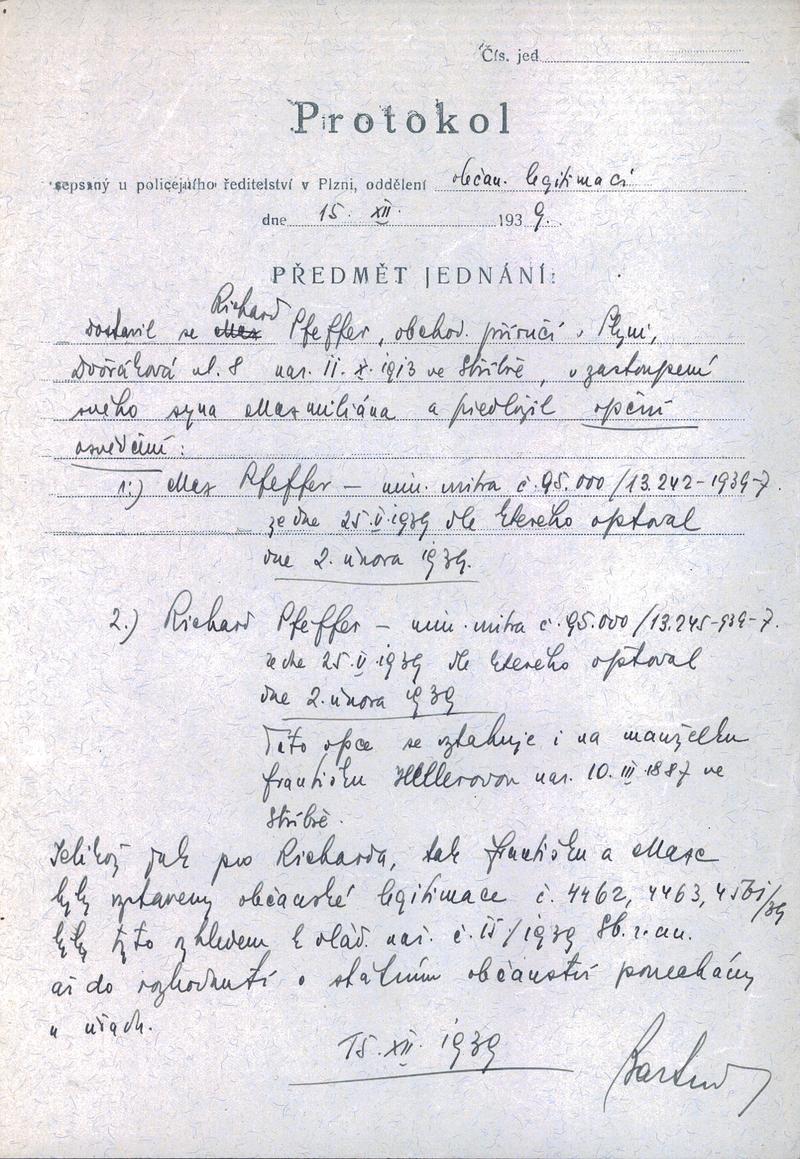 Čís. jed.
Protokol
sepsaný u policejního ředitelství v Plzni, oddělení občan. legitimací
dne 15. XII. 1939.
PŘEDMĚT JEDNÁNÍ:
Richard
Dostavil se Max Pfeffer, obchod. příručí v Plzni,
Dvořákova ul. 8 nar. 11. X. 1913 ve Stříbře, v zastoupení
svého syna Maxmiliána a předložil opční
osvědčení:
1.) Max Pfeffer – min. vnitra č. 95.000/13.242-1939-7.
ze dne 25.V.1939 dle kterého optoval
dne 2. února 1939.
2.) Richard Pfeffer – min. vnitra č. 95.000/13.245-939-7.
ze dne 25.V.1939 dle kterého optoval
dne 2. února 1939
Tato opce se vztahuje i na manželku
Františku Hellerovou nar. 10. III 1887 ve
Stříbře.
Jelikož jak pro Richarda, tak Františku a Maxe
byly vystaveny občanské legitimace č. 4462, 4463, /39
byly tyto vzhledem k vlád. nař. č. 15/1939 Sb. z. a n.
až do rozhodnutí o státním občanství ponechány
u
15. XII. 1939